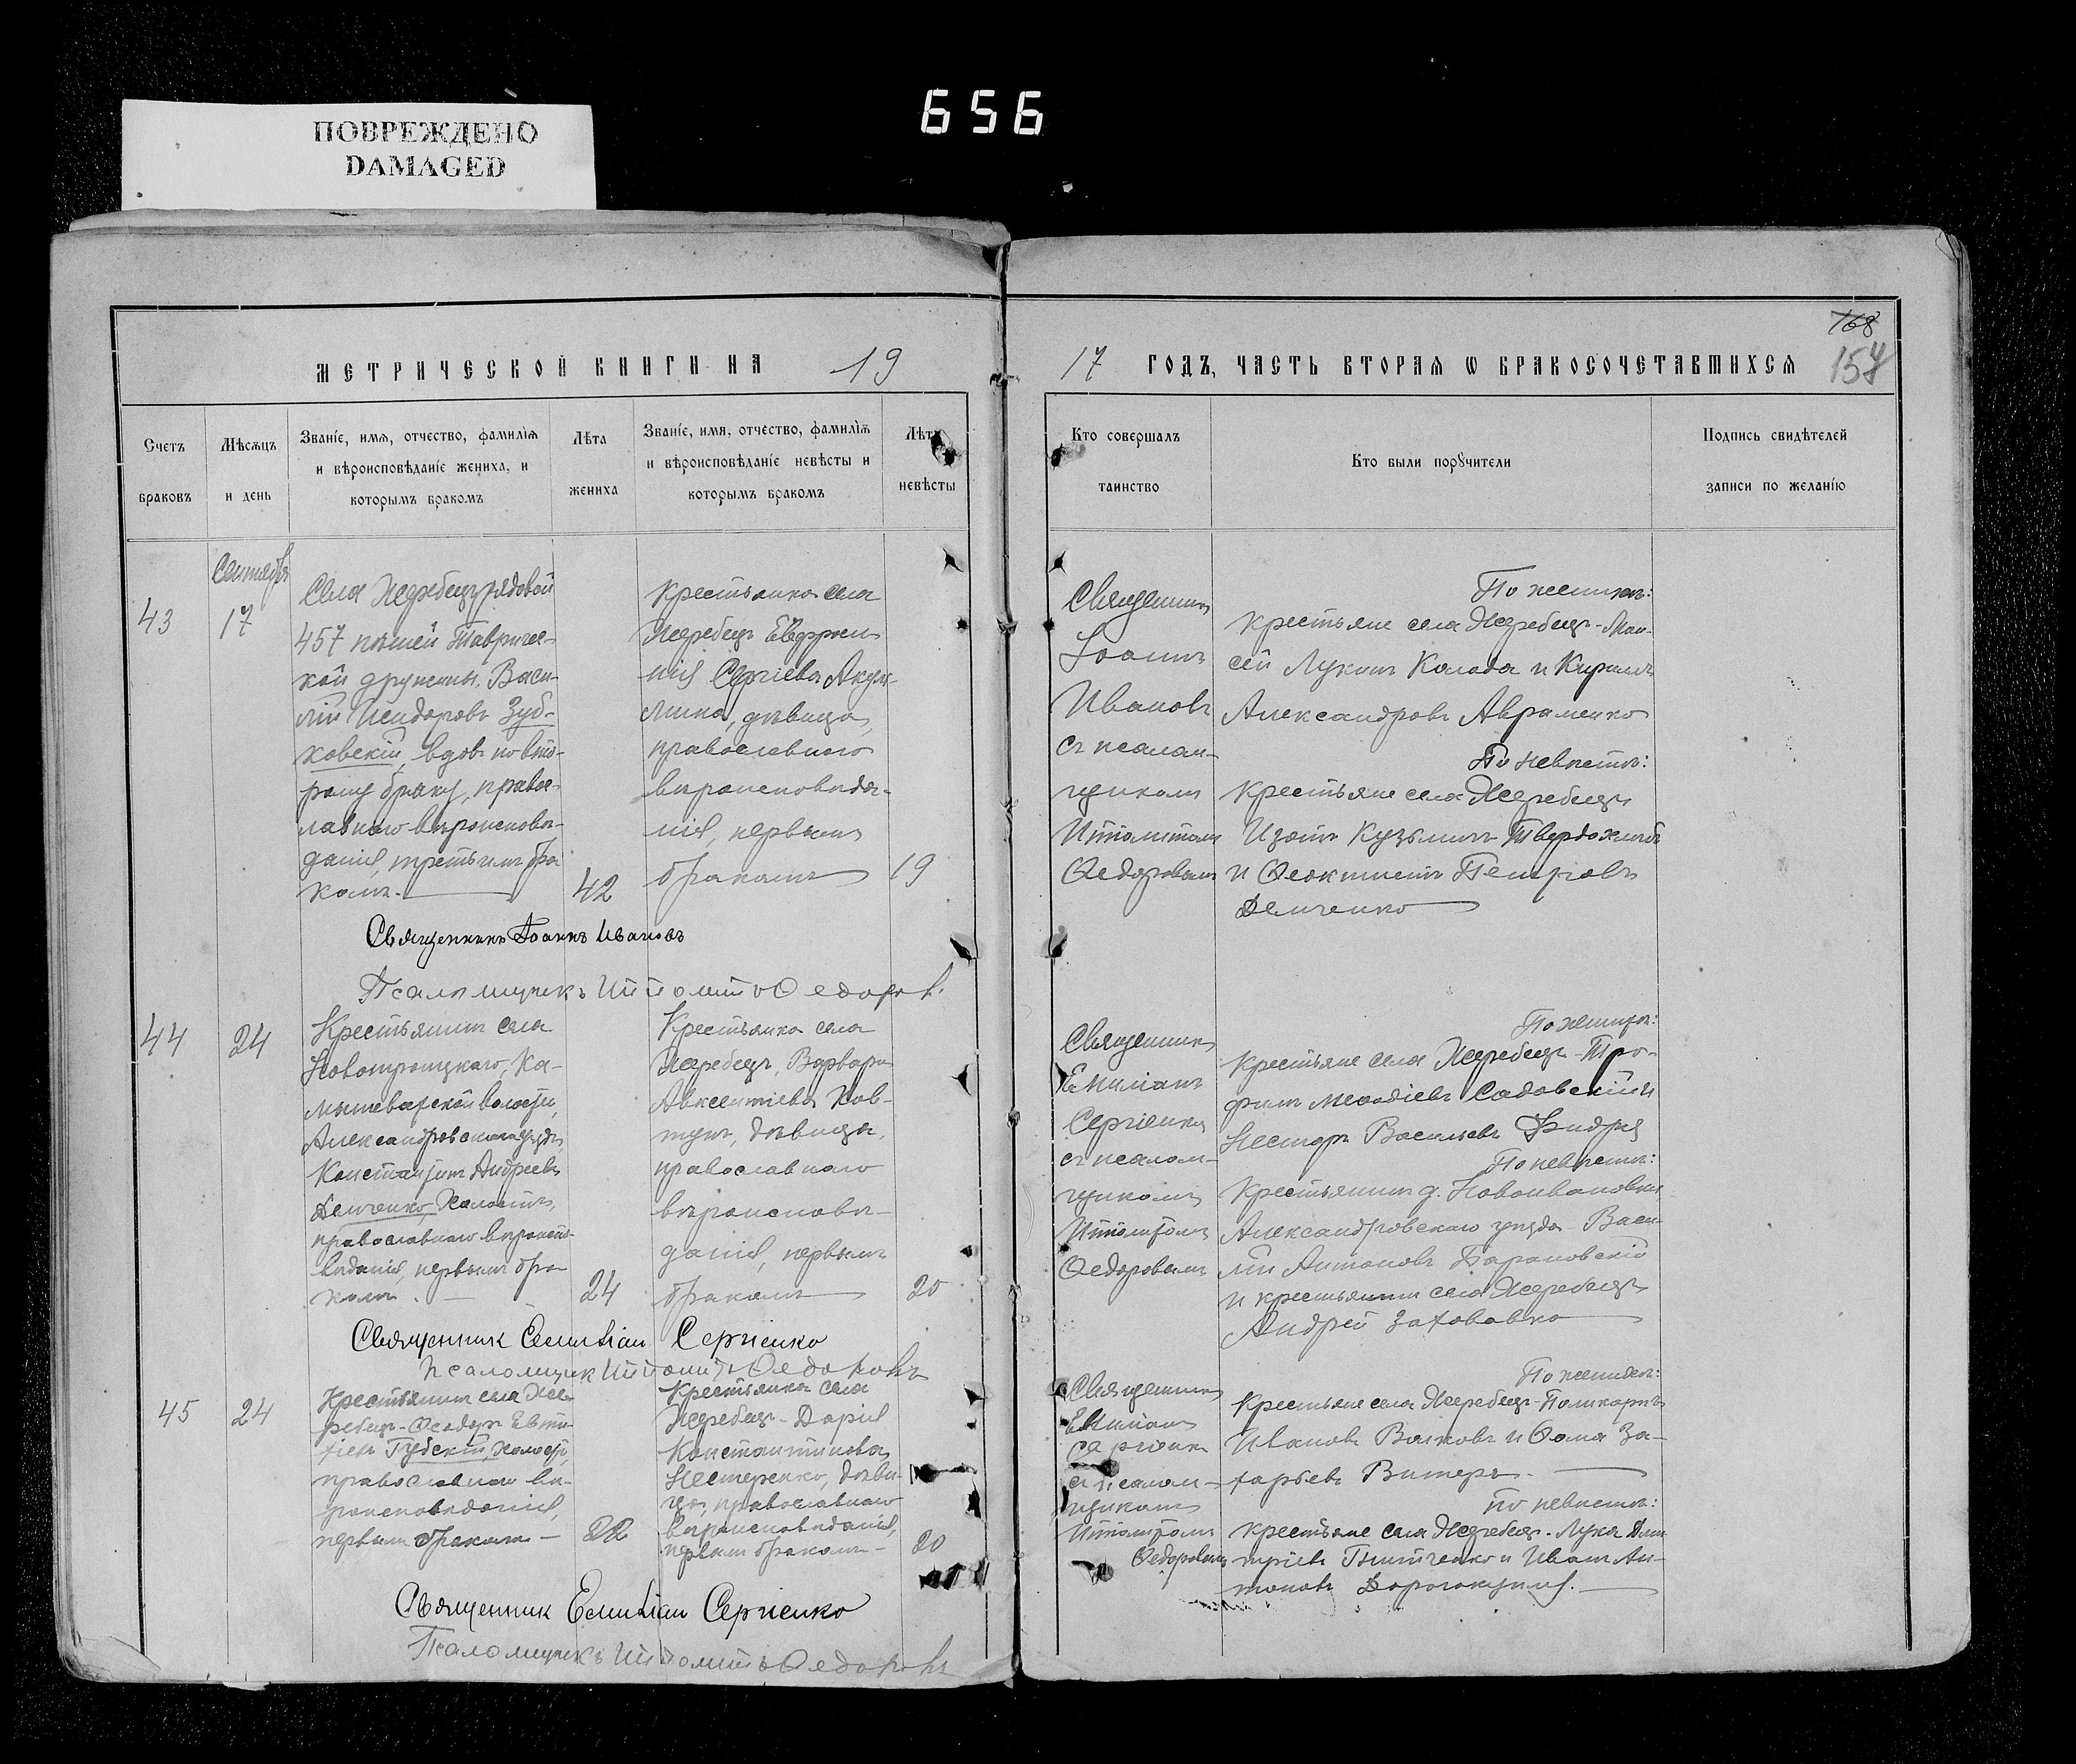 656
ПОВРЕЖДЕНО
DAMAGED
168
157
МЕТРИЧЕСКОЙ КНИГИ НА 19
17 ГОДЪ, ЧАСТЬ ВТОРАЯ Ѡ БРАКОСОЧЕТАВШИХСЯ
Счетъ
браковъ
Мѣсяцъ
и день
Званіе, имя, отчество, фамилія
и вѣроисповѣданіе жениха, и
которымъ бракомъ
Лѣта
жениха
Званіе, имя, отчество, фамилія
и вѣроисповѣданіе невѣсты и
которымъ бракомъ
Лѣта
невѣсты
Кто совершалъ
таинство
Кто были поручители
Подпись свидѣтелей
записи по желанію
43
Сентябрь
17
Села Жеребецъ рядовой
457 пѣшей Тавричес-
кой дружины, Васи-
лій Исидоровъ Зуб-
ковскій, вдовъ по вто-
рому браку, правос-
лавнаго вѣроисповѣ-
данія, третьимъ бра
комъ.
42
Крестьянка села
Жеребецъ Евфроси-
нія Сергіева Акул-
лина, дѣвица,
православнаго
вѣроисповѣда-
нія, первымъ
бракомъ
19
Священникъ
Іоаннъ
Ивановъ
съ псалом-
щикомъ
Ипполитомъ
Ѳедоровымъ
По женихѣ:
Крестьяне села Жеребецъ - Мои-
сей Лукинъ Колода и Кириллъ
Александровъ Авраменко
По невѣстѣ:
Крестьяне села Жеребецъ
Изотъ Кузьминъ Твердохлѣбъ
и Ѳеоктистъ Петровъ
Демченко
Священникъ Іоаннъ Ивановъ
Псаломщикъ Ипполитъ Ѳедоровъ
44
24
Крестьянинъ села
Новотроицкаго, Ка-
мышевахской волости,
Александровскаго уѣзда,
Константинъ Андреевъ
Демченко, холостъ,
православнаго вѣроиспо-
вѣданія, первымъ бра-
комъ.
24
Крестьянка села
Жеребецъ, Варвара
Авксентіева Ков-
тунъ, дѣвица,
православнаго
вѣроисповѣ-
данія, первымъ
бракомъ
20
Священникъ
Емиліанъ
Сергіенко
съ псалом-
щикомъ
Ипполитомъ
Ѳедоровымъ
По женихѣ:
Крестьяне села Жеребецъ - Тро-
фимъ Меѳодіевъ Садовскій и
Несторъ Васильевъ
По невѣстѣ:
Крестьянинъ д. Новоивановки
Александровскаго уѣзда Васи-
лій Антоновъ Барановскій
и крестьянинъ села Жеребецъ
Андрей
Священник Емиліан Сергіенко
Псаломщик Ипполитъ Ѳедоровъ
45
24
Крестьянинъ села Же-
ребецъ - Ѳеодоръ Евти-
хіевъ Губскій, холостъ,
православнаго вѣ-
роисповѣданія,
первымъ бракомъ —
22
Крестьянка села
Жеребецъ - Дарія
Константинова
Нестеренко, дѣви-
ца, православнаго
вѣроисповѣданія,
первымъ бракомъ —
20
Священникъ
Емиліанъ
Сергіенко
съ псалом-
щикомъ
Ипполитомъ
Ѳедоровымъ
По женихѣ:
Крестьяне села Жеребецъ - Поликарпъ
Ивановъ Волковъ и Ѳома За-
харьевъ Витеръ.
По невѣстѣ:
Крестьяне села Жеребецъ - Лука Дми
тріевъ и Иванъ Ан-
тоновъ Дорогокупля.
Священник Емиліан Сергіенко
Псаломщикъ Ипполитъ Ѳедоровъ